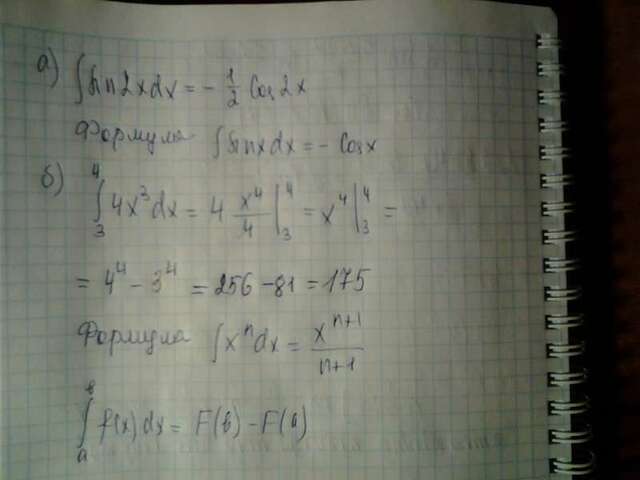 а) ∫sin2xdx = - 1/2 Cos2x
Формула ∫sinxdx = - Cosx
б) ∫₃⁴ 4x³dx = 4 x⁴/4 |₃⁴ = x⁴|₃⁴ =
= 4⁴ - 3⁴ = 256 - 81 = 175
Формула ∫xⁿdx = xⁿ⁺¹/n+1
∫ₐᵇ f(x)dx = F(b) - F(a)